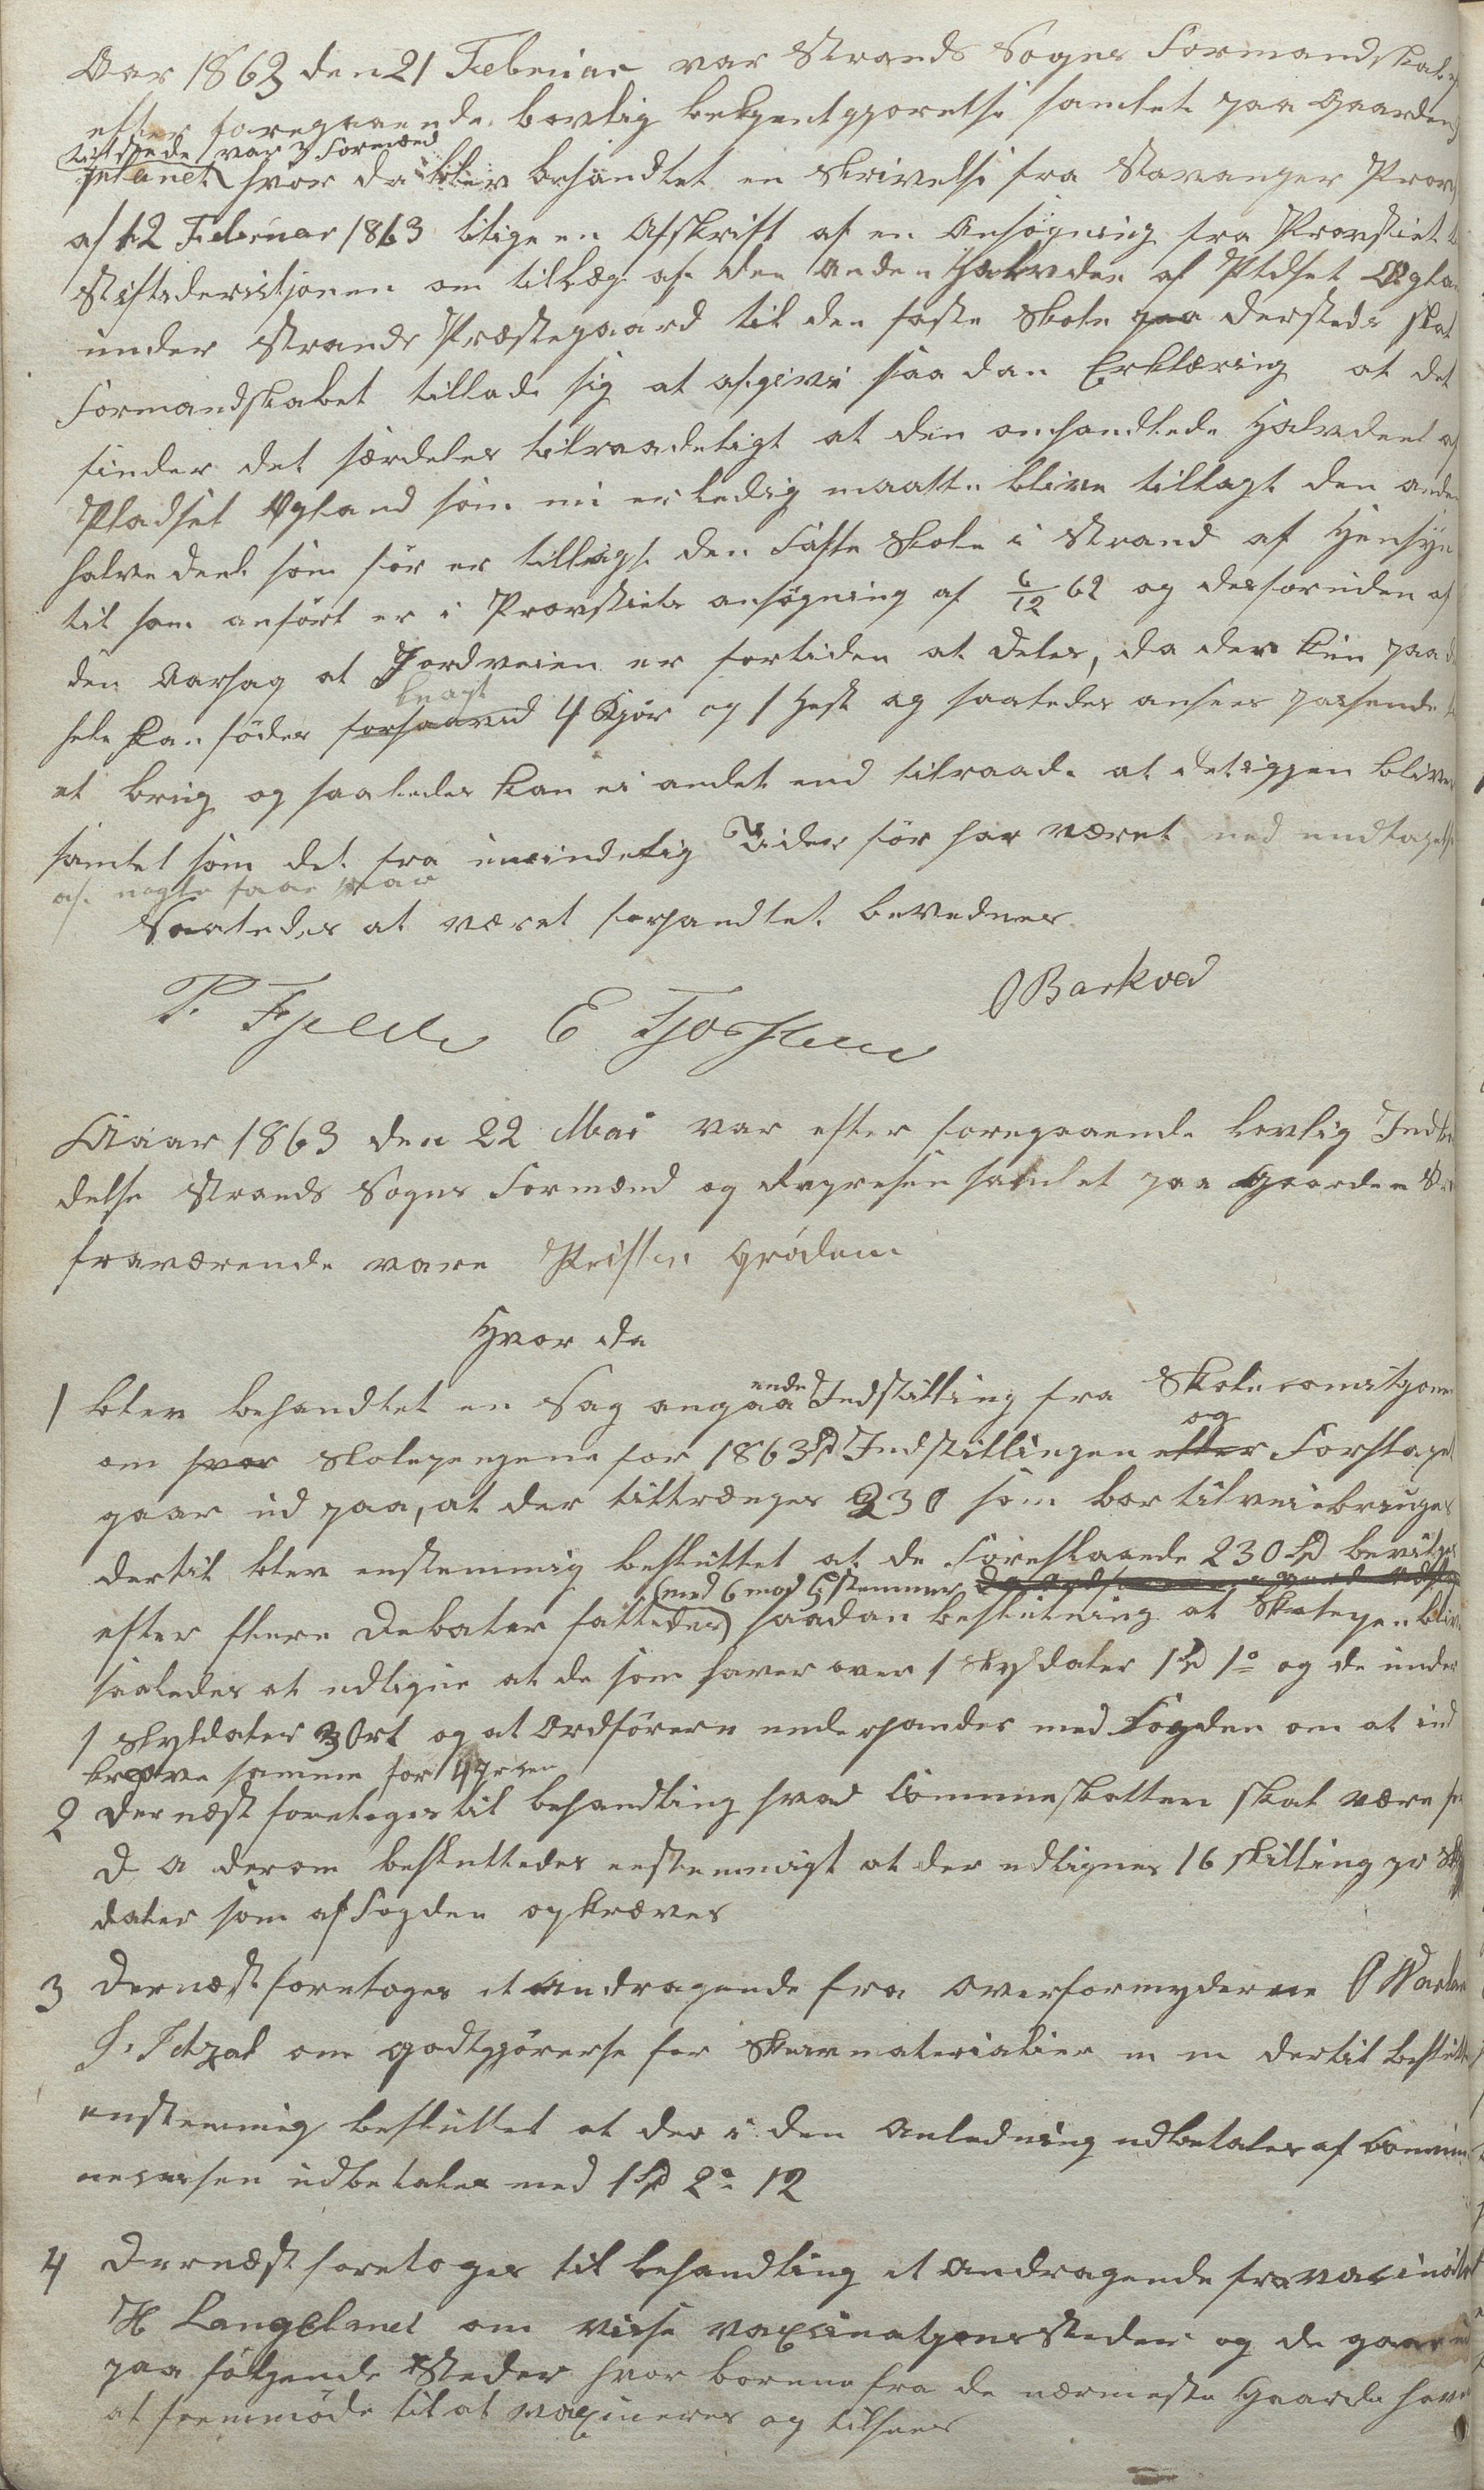 Aar 1863 den 21 Februar var Strands Sogns Formandskab
efter foregaaende lovlig bekjentgjørelse samlet paa Gaarden
tilstede var 3 Formænd
hvor da blev behandlet en Skrivelse fra Stavanger Provsti
af 12 Februar 1863 tilige en Afskrift af en Ansøgning fra Provstiet
Stiftsdericksjonen om tillæg af den anden Halvden af Pladset Øgland
under Strands Præstegaard til den faste Skole paa dersteds skal
Formandskabet tillade sig at afgive saadan Erklæring at det
finder det særdeles tilraadeligt at den omhandlede Halvdeel af
Pladset Øgland som nu er ledig maatte blive tillagt den anden
halve deel som før er tillagt den Faste Skole i Strand af Hensyn
til som anført er i Provstiets ansøgning af 6/12 62 og desforuden af
den Aarsag at Jordveien er forliden at deles, da der kun paa det
knapt
hele kan fødes forsaavid 4 Kjør og 1 Hest og saaledes ansees passende
et brug og saaledes kan ei andet end tilraade at det igjen bliver
samlet som det fra umindelig Tider før har været med undtagelse
af nogle faae Aar
Saaledes at været forhandlet bevidnes
P. Fjelde E Tjøstheim O Barkved
Aaar 1863 den 22 Mai var efter foregaaende lovlig Indby
delse Strands Sogns Formænd og Represen samlet paa Gaarden
fraværende vare Kristen Grødem
Hvor da
1 blev behandlet en Sag angaaende Indstilling fra Skolecomisjonen
og
om hvor Skolepengene for 1863 Indstillingen efter Forslaget
gaar ud paa, at der tiltrænges 230 som bør tilveiebringes
dertil blev enstemmig besluttet at de Foreslaaede 230 Spd bevilges
(med 6 mod 5 stemmer
efter flere Debater fattedes) saadan beslutning at Skolepen blive
saaledes at udligne at de som haver over 1 Skyldaler 1 Spd 1 o og de under
1 Skyldaler 3 Ort og at Ordføreren underhandler med Fogden om at ind
kræve samme for 4 Prsen
2 Dernæst foretoges til behandling hvad Communeskatten skal være for
D A derom besluttedes enstemmigt at der udlignes 16 skilling pr Sky
daler som af Fogden opkræves
3 Dernæst foretoges et Andragende fra Overformyderne
om godtgjørerse for Skrivmaterialier m m dertil beslutte
enstemmig besluttet at der i den Anledning udbetales af Commu
necassen udbetales med 1 Spd 2 o 12
4 Dernæst foretoges til behandling et Andragende fra vacinøør
H Langeland om visse vaxsinatjonssteder og de gaar ud
paa følgende Steder hvor børene fra de nærmeste Gaarde have
at fremmøde til at vaxineres og tilsees